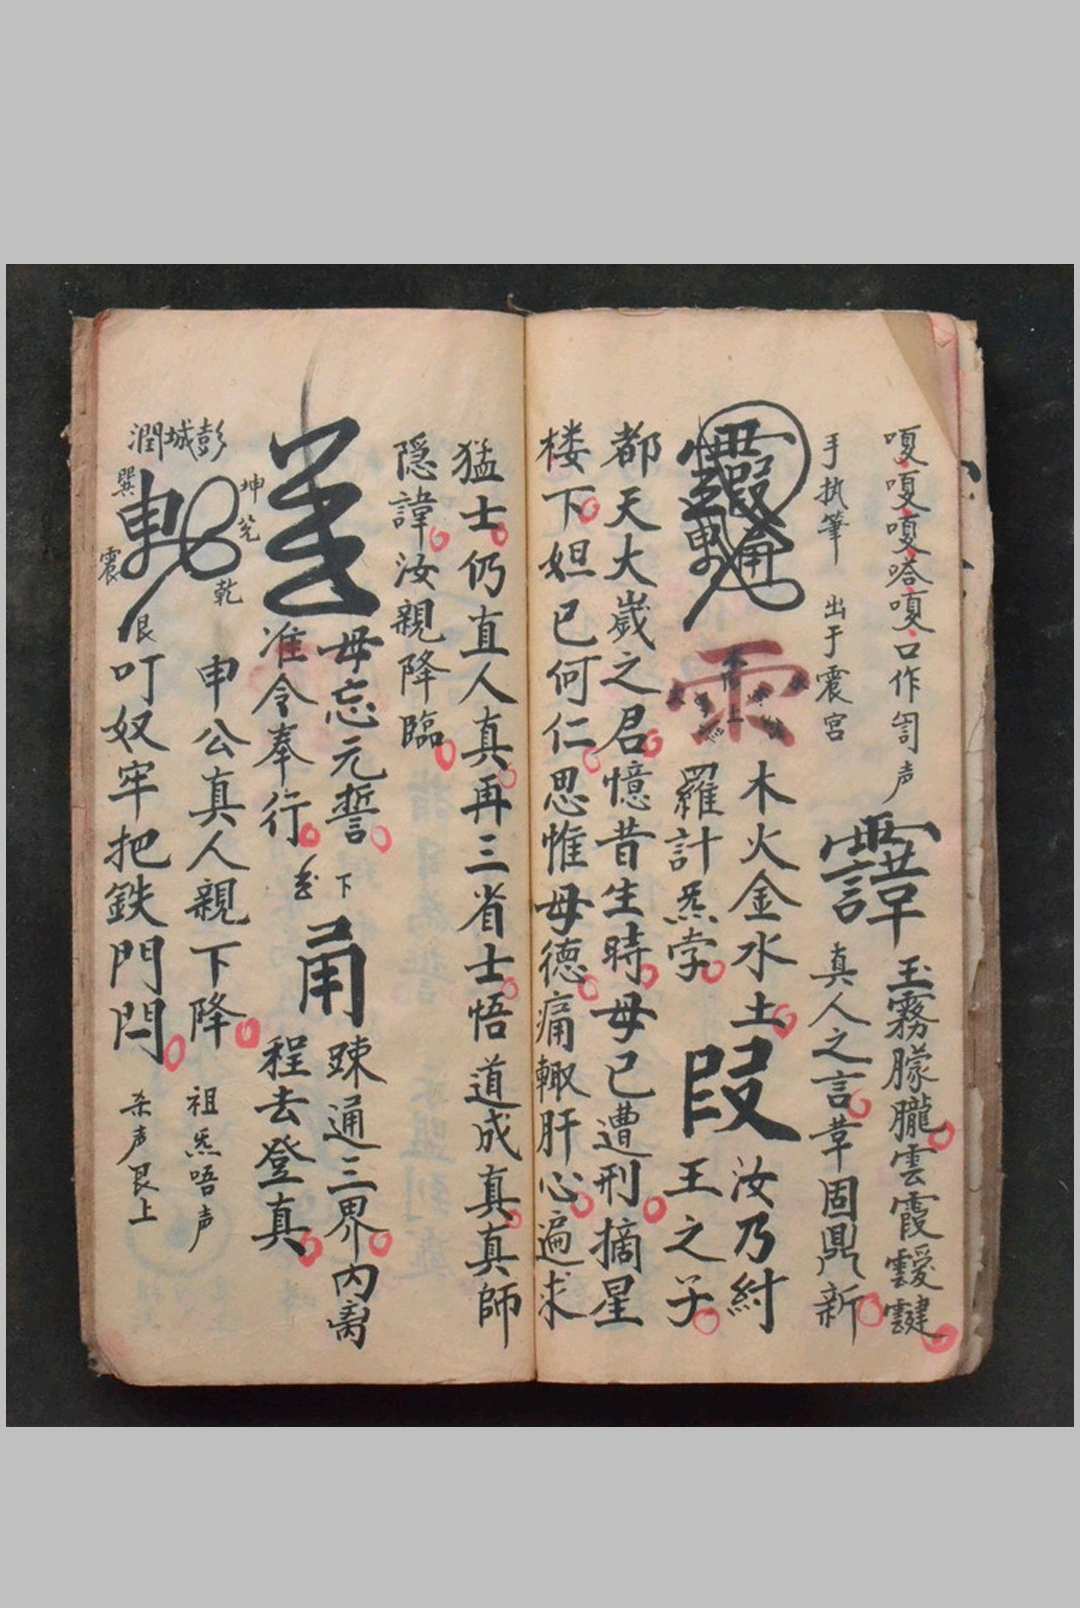 嗄嗄嗄嗒嗄口作訇声
玉霧朦朧雲霞靉靆
手执筆 出于震宫
真人之言革固鼎新
木火金水土
汝乃紂
羅計炁孛
王之子
都天大歲之君憶昔生時母已遭刑摘星
楼下妲已何仁思惟母德痛輙肝心遍求
猛士仍直人真再三省士悟道成真真師
隠諱汝親降臨
毋忘元誓
下
疎通三界内离
准令奉行
甬
程去登真
彭城潤
坤 兑 乾
巽 震 艮
申公真人親下降
祖炁唔声
叮奴牢把鉄門閂
声艮上